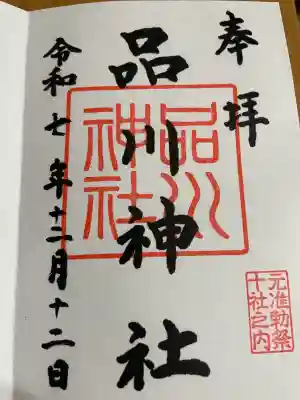 奉拝
品川神社
品川
神社
元准勅祭
十社之内
令和七年十二月十二日